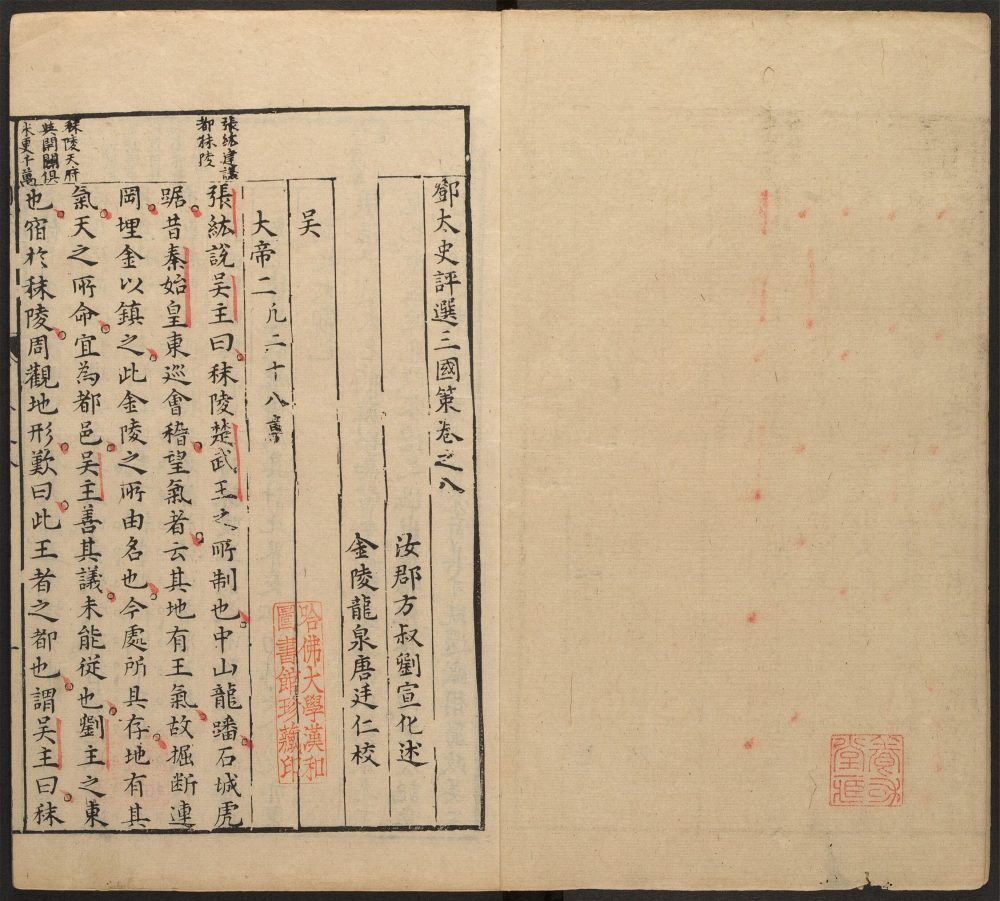 鄧太史評選三國策卷之八
汝郡方叔劉宣化述
金陵龍泉唐廷仁校
吳
大帝二凢二十八章
張紘建議
都秣陵
張紘說吳主曰秣陵楚武王之所制也中山龍蹯石城虎
踞昔秦始皇東巡會稽望氣者云其地有王氣故掘断連
岡埋金以鎮之此金陵之所由名也今處所具存地有其
秣陵天府
與開闢俱
氣天之所命宜為都邑吳主善其議未能従也劉主之東
來更千萬
也宿於秣陵周觀地形歎曰此王者之都也謂吳主曰秣
哈佛大學漢和
圖書館珍藏印